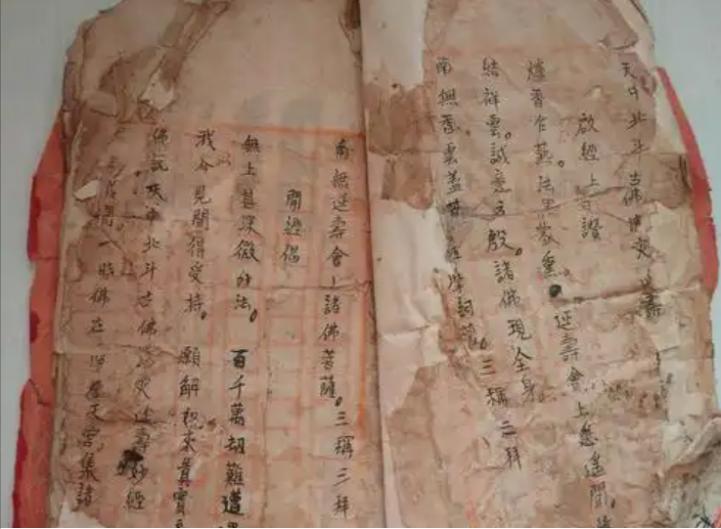 天中北斗古佛消災延壽
啟經上香讚
爐香乍爇。法界蒙熏。延壽會上悉遙聞。
結祥雲。誠意方殷。諸佛現全身
南無香雲蓋菩薩摩訶薩。三稱三拜
南無延壽會上諸佛菩薩。三稱三拜
開經偈
無上甚深微妙法。百千萬劫難遭
我今見聞得受持。願解祝來真實
佛說天中北斗古佛消災延壽妙經
一時佛在天宮。集諸